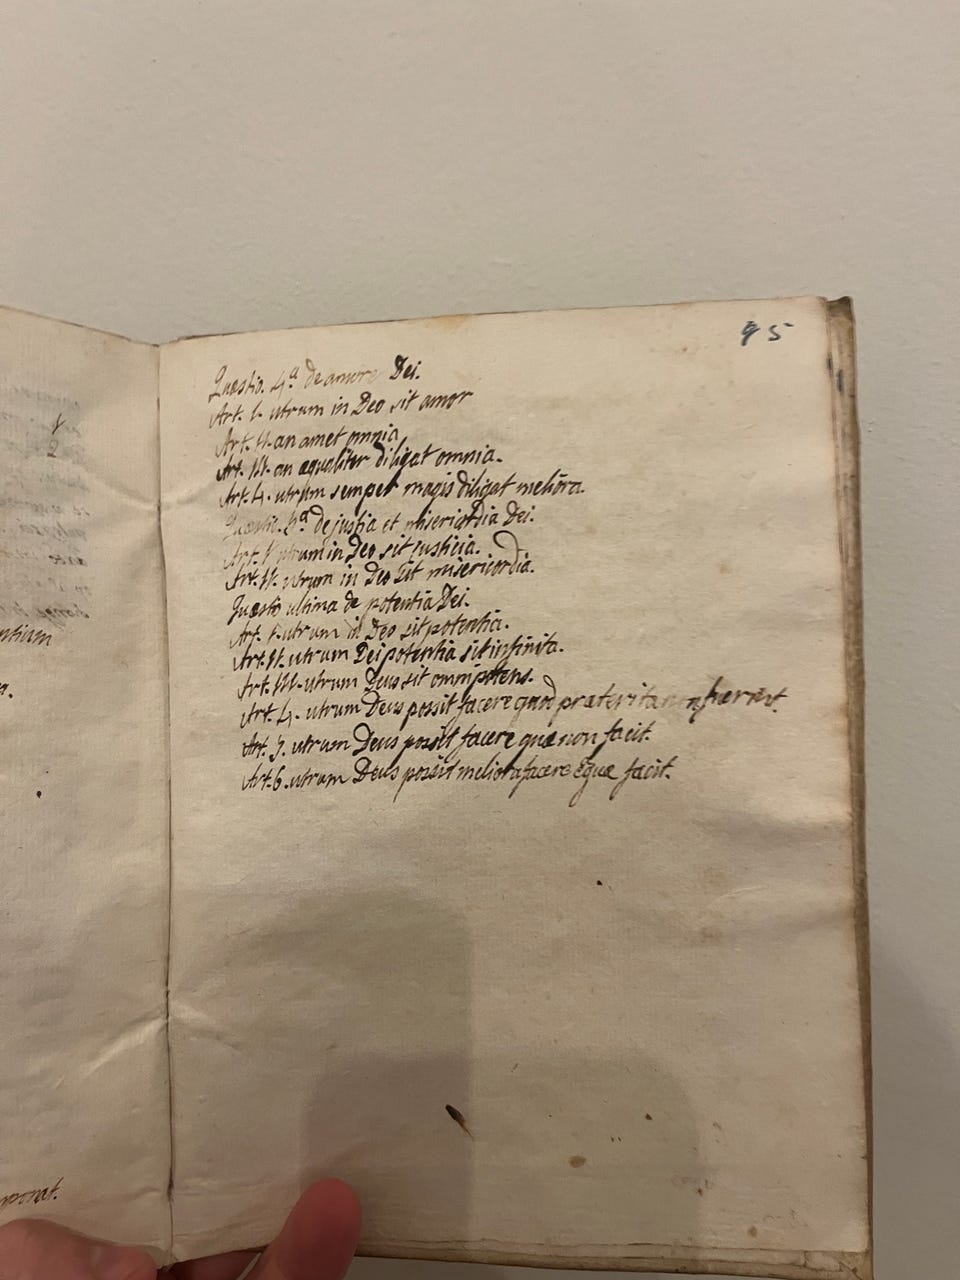 95
Quæstio. 4.ª de amore Dei.
Art. I. utrum in Deo sit amor
Art. II. an amet omnia
Art. III. an æqualiter diligat omnia.
Art. 4. utrum semper magis diligat meliora.
Quæstio. 5ª de justia et misericordia Dei.
Art. I. utrum in Deo sit justicia.
Art. II. utrum in Deo sit misericordia.
Quæstio ultima de potentia Dei.
Art. I. utrum in Deo sit potentia.
Art. II. utrum Dei potentia sit infinita.
Art. III. utrum Deus sit omnipotens.
Art. 4. utrum Deus possit facere quod præterita non fuerint.
Art. 5. utrum Deus possit facere quæ non facit.
Art. 6. utrum Deus possit meliora facere eque facit.
1
2
ntium